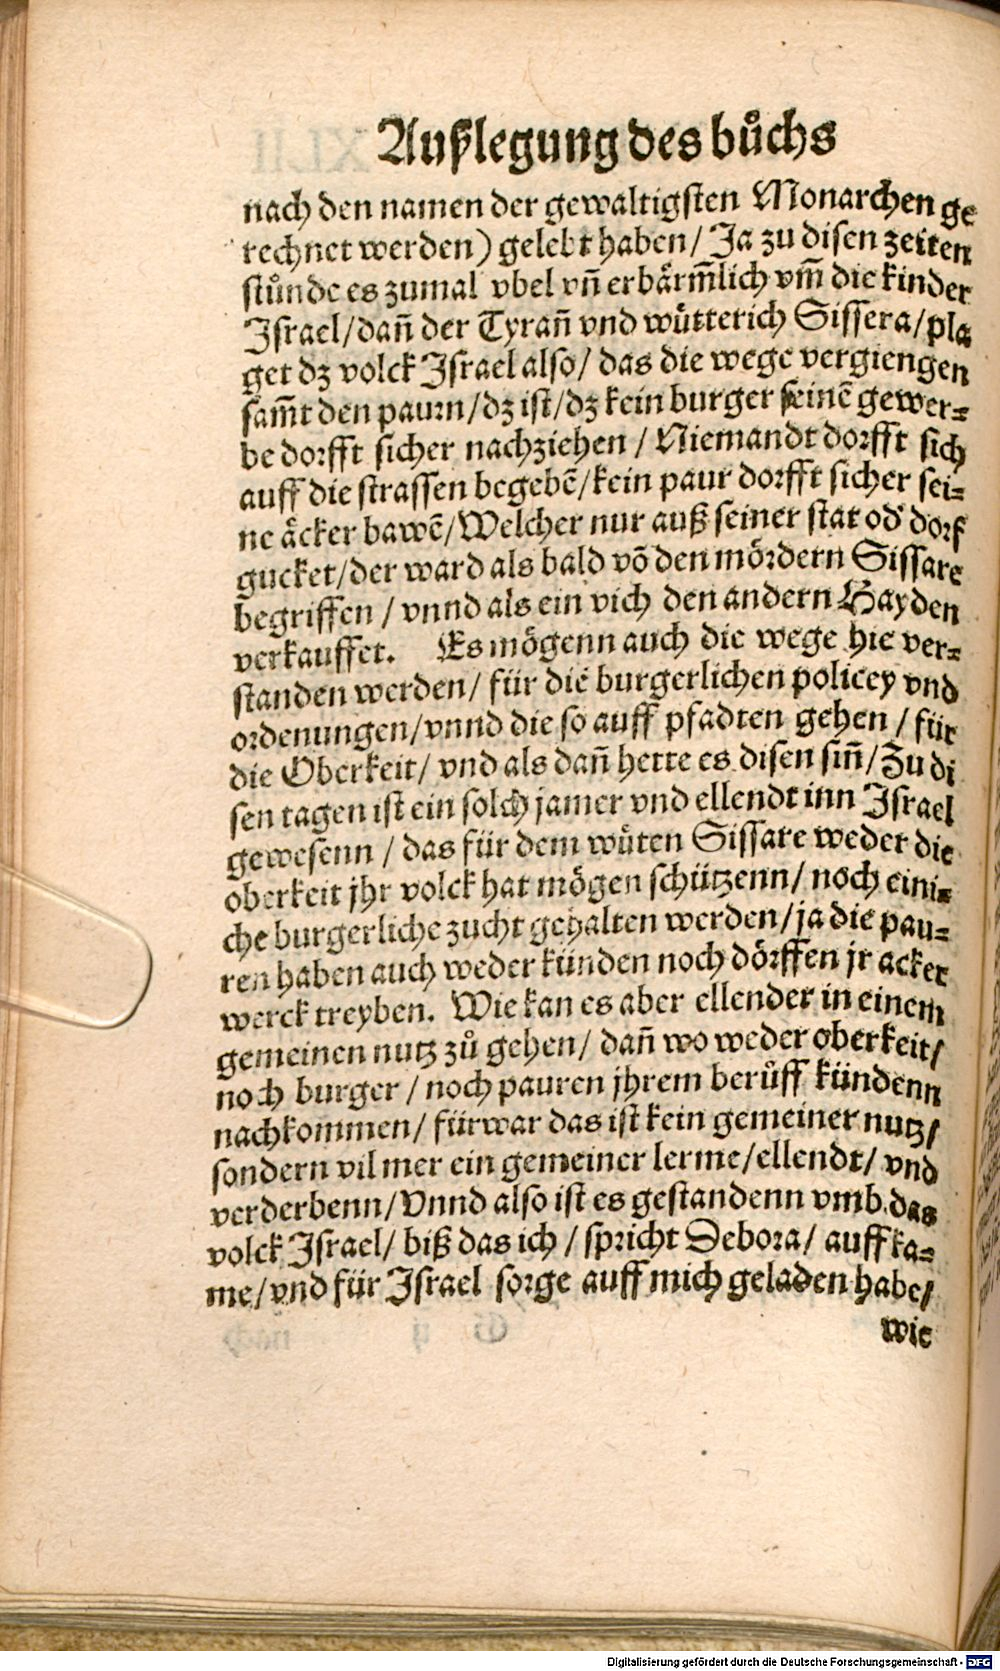 Außlegung des bůchs
nach den namen der gewaltigsten Monarchen ge
rechnet werden) gelebt haben/ Ja zu disen zeiten
stůnde es zumal vbel vñ erbärm̃lich vm̃ die kinder
Israel/dañ der Tyrañ vnd wütterich Sissera/pla
get dz volck Israel also/ das die wege vergiengen
sam̃t den paurn/dz ist/dz kein burger seinẽ gewer⸗
be dorfft sicher nachziehen / Niemandt dorfft sich
auff die strassen begebẽ/kein paur dorfft sicher sei⸗
ne äcker bawẽ/Welcher nur auß seiner stat od' dorf
gucket/der ward als bald võ den mördern Sissare
begriffen / vnnd als ein vich den andern Hayden
verkauffet. Es mögenn auch die wege hie ver⸗
standen werden/ für die burgerlichen policey vnd
ordenungen/vnnd die so auff pfadten gehen / für
die Oberkeit/ vnd als dañ hette es disen siñ/Zu di
sen tagen ist ein solch jamer vnd ellendt inn Israel
gewesenn / das für dem wüten Sissare weder die
oberkeit jhr volck hat mögen schützenn/ noch eini⸗
che burgerliche zucht gehalten werden/ja die pau⸗
ren haben auch weder künden noch dörffen jr acker
werck treyben. Wie kan es aber ellender in einem
gemeinen nutz zů gehen/ dañ wo weder oberkeit/
noch burger / noch pauren jhrem berůff kündenn
nachkommen/ fürwar das ist kein gemeiner nutz/
sondern vil mer ein gemeiner lerme/ellendt/ vnd
verderbenn/Vnnd also ist es gestandenn vmb das
volck Israel/ biß das ich / spricht Debora/ auff ka⸗
me/vnd für Israel sorge auff mich geladen habe/
wie
Digitalisierung gefördert durch die Deutsche Forschungsgemeinschaft - DFG